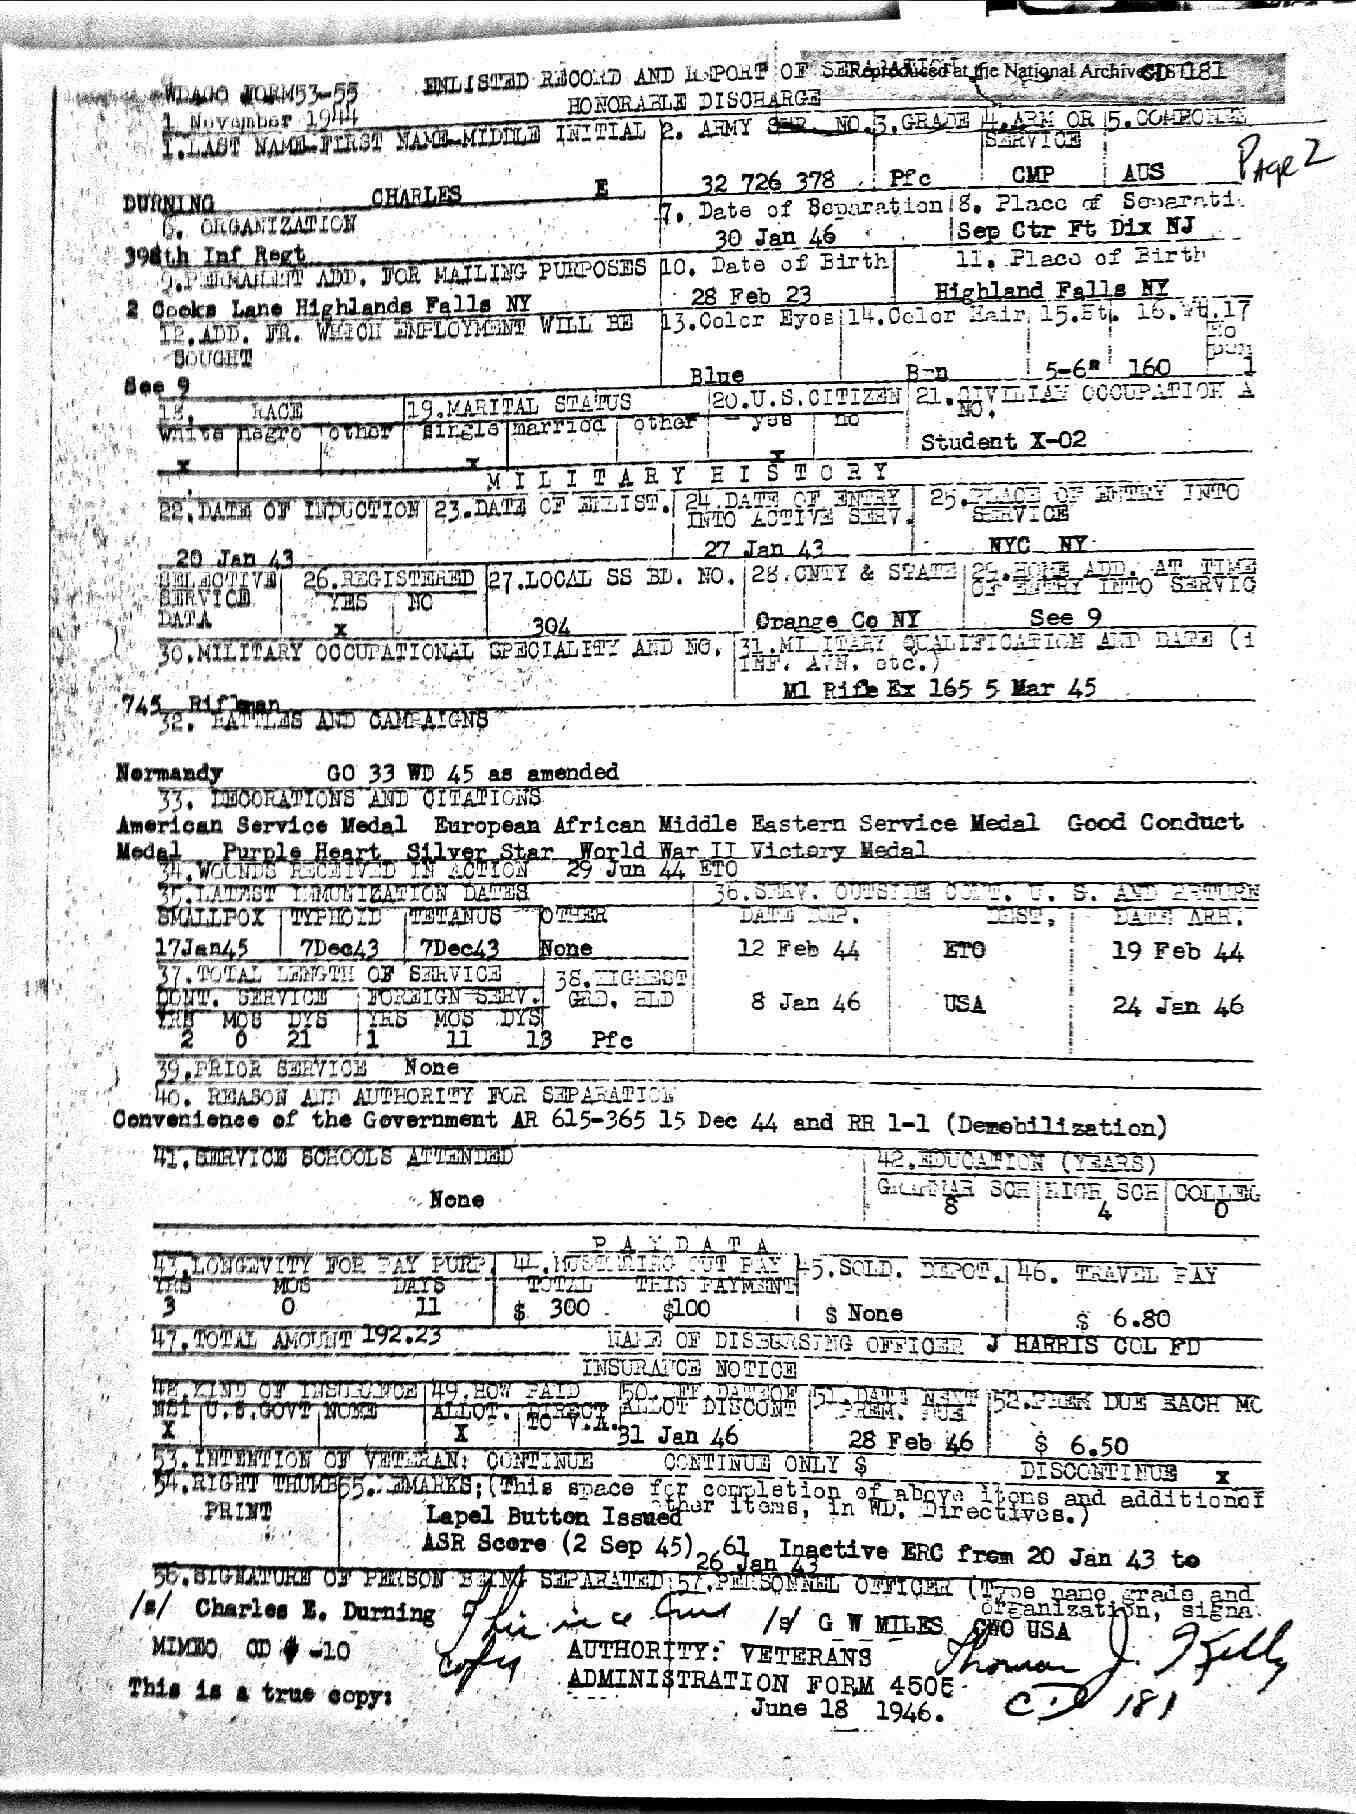 WDAGO FORM53-55 ENLISTED RECORD AND REPORT OF SEPARATION Reproduced at the National Archives CD 181
1 November 1944 HONORABLE DISCHARGE
1.LAST NAME-FIRST NAME-MIDDLE INITIAL 2. ARMY SER. NO. 3.GRADE 4.ARM OR SERVICE 5.COMPONEN
Page 2
DURNING CHARLES E 32 726 378 Pfc CMP AUS
6. ORGANIZATION 7. Date of Separation 8. Place of Separati
398th Inf Regt 30 Jan 46 Sep Ctr Ft Dix NJ
9.PERMANENT ADD. FOR MAILING PURPOSES 10. Date of Birth 11. Place of Birth
2 Cooks Lane Highlands Falls NY 28 Feb 23 Highland Falls NY
12.ADD. FR. WHICH EMPLOYMENT WILL BE SOUGHT 13.Color Eyes 14.Color Hair 15.Ht. 16.Wt. 17
See 9 Blue Brn 5-6" 160 1
18. RACE 19.MARITAL STATUS 20.U.S.CITIZEN 21.CIVILIAN OCCUPATION A NO.
white negro other single married other yes no
x x x Student X-02
MILITARY HISTORY
22.DATE OF INDUCTION 23.DATE OF ENLIST. 24.DATE OF ENTRY INTO ACTIVE SERV. 25.PLACE OF ENTRY INTO SERVICE
20 Jan 43 27 Jan 43 NYC NY
SELECTIVE SERVICE DATA 26.REGISTERED 27.LOCAL SS BD. NO. 28.CNTY & STATE 29.HOME ADD. AT TIME OF ENTRY INTO SERVIC
YES NO
x 304 Orange Co NY See 9
30.MILITARY OCCUPATIONAL SPECIALITY AND NO. 31.MILITARY QUALIFICATION AND DATE (i INF. AVN. etc.)
745 Rifleman M1 Rifle Ex 165 5 Mar 45
32. BATTLES AND CAMPAIGNS
Normandy GO 33 WD 45 as amended
33. DECORATIONS AND CITATIONS
American Service Medal European African Middle Eastern Service Medal Good Conduct
Medal Purple Heart Silver Star World War II Victory Medal
34.WOUNDS RECEIVED IN ACTION 29 Jun 44 ETO
35.LATEST IMMUNIZATION DATES 36.SERV. OUTSIDE CONT. U. S. AND RETURN
SMALLPOX TYPHOID TETANUS OTHER DATE DEP. DEST. DATE ARR.
17Jan45 7Dec43 7Dec43 None 12 Feb 44 ETO 19 Feb 44
37.TOTAL LENGTH OF SERVICE 38.HIGHEST GRD. HLD
CONT. SERVICE FOREIGN SERV. 8 Jan 46 USA 24 Jan 46
YRS MOS DYS YRS MOS DYS
2 0 21 1 11 13 Pfc
39.PRIOR SERVICE None
40. REASON AND AUTHORITY FOR SEPARATION
Convenience of the Government AR 615-365 15 Dec 44 and RR 1-1 (Demobilization)
41.SERVICE SCHOOLS ATTENDED 42.EDUCATION (YEARS)
None GRAMMAR SCH HIGH SCH COLLEG
8 4 0
PAY DATA
43.LONGEVITY FOR PAY PURP. 44.MUSTERING OUT PAY 45.SOLD. DEPOT. 46. TRAVEL PAY
YRS MOS DAYS TOTAL THIS PAYMENT
3 0 11 $ 300 $100 $ None $ 6.80
47.TOTAL AMOUNT 192.23 NAME OF DISBURSING OFFICER J HARRIS COL FD
INSURANCE NOTICE
48.KIND OF INSURANCE 49.HOW PAID 50.EFF.DATE OF ALLOT DISCONT 51.DATE NEXT PREM. DUE 52.PREM DUE EACH MO
NSI U.S.GOVT NONE ALLOT. DIRECT TO V.A.
X X 31 Jan 46 28 Feb 46 $ 6.50
53.INTENTION OF VETERAN: CONTINUE CONTINUE ONLY $ DISCONTINUE x
54.RIGHT THUMB PRINT 55.REMARKS;(This space for completion of above items and additional
other items, in WD. Directives.)
Lapel Button Issued
ASR Score (2 Sep 45) 61 Inactive ERC from 20 Jan 43 to
26 Jan 43
56.SIGNATURE OF PERSON BEING SEPARATED 57.PERSONNEL OFFICER (Type name grade and organization, signa.
/s/ Charles E. Durning /s/ G W MILES CWO USA
This is a true copy
MIMEO CD # -10 AUTHORITY: VETERANS
ADMINISTRATION FORM 4505
Thomas J. Kelly
This is a true copy: June 18 1946. CD 181